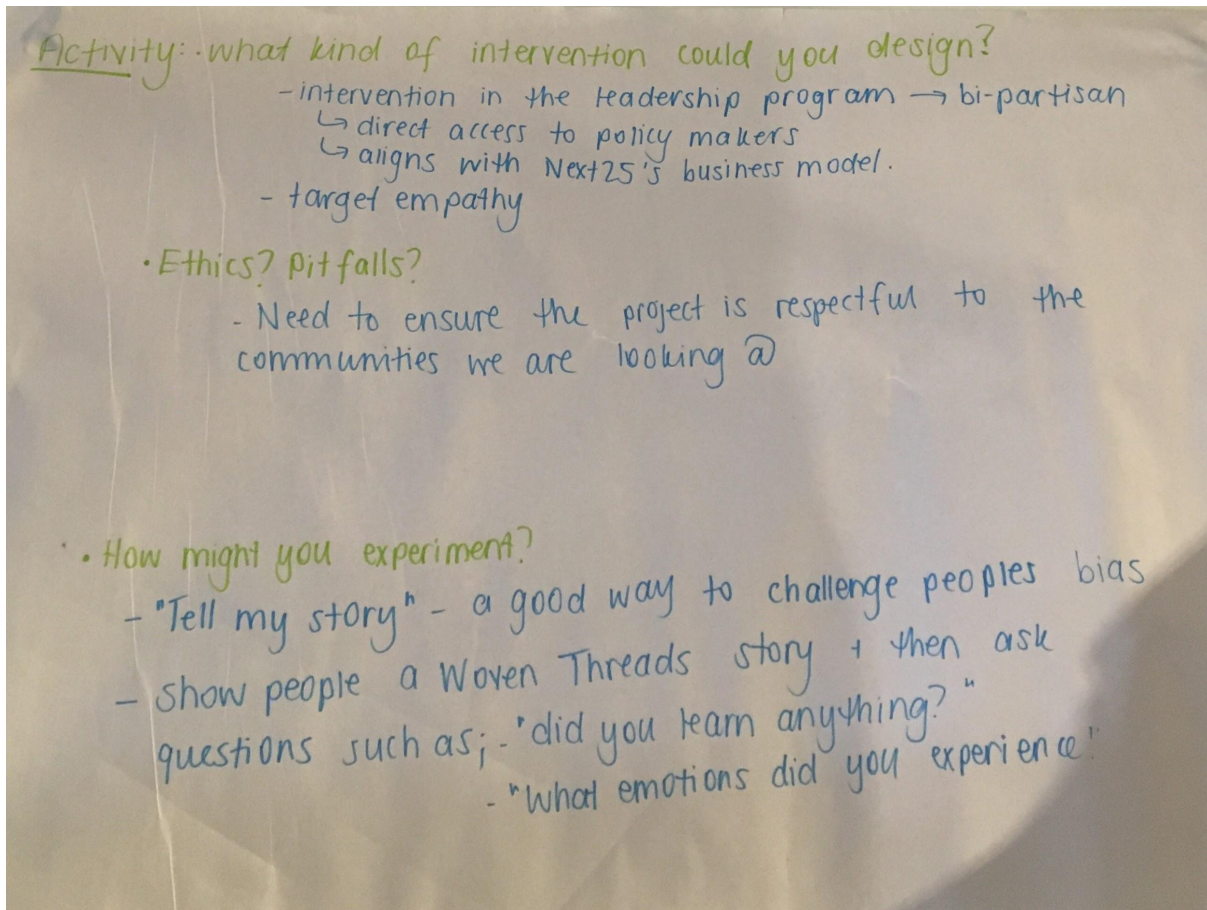 Activity: what kind of intervention could you design?
- intervention in the leadership program → bi-partisan
↳ direct access to policy makers
↳ aligns with Next25's business model.
- target empathy
• Ethics? Pitfalls?
- Need to ensure the project is respectful to the
communities we are looking @
• How might you experiment?
- "Tell my story" - a good way to challenge peoples bias
- Show people a Woven Threads story + then ask
questions such as; - "did you learn anything?"
- "What emotions did you experience"